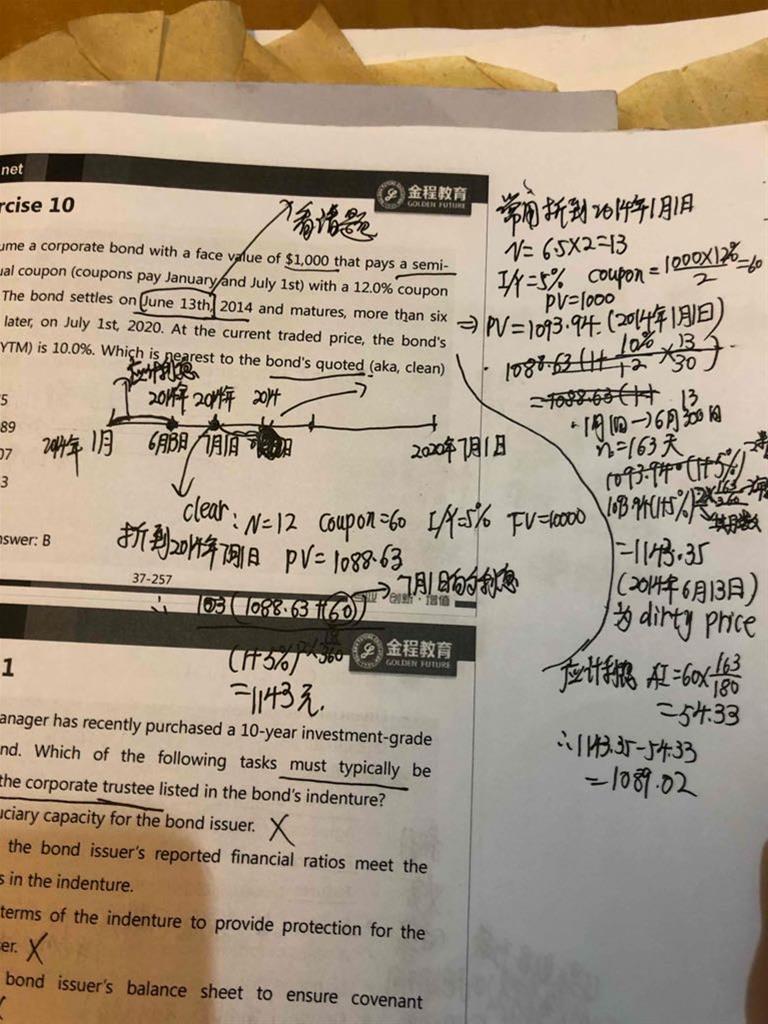 net
金程教育
GOLDEN FUTURE
rcise 10
看清题
ume a corporate bond with a face value of $1,000 that pays a semi-
ual coupon (coupons pay January and July 1st) with a 12.0% coupon
The bond settles on June 13th, 2014 and matures, more than six
later, on July 1st, 2020. At the current traded price, the bond's
YTM) is 10.0%. Which is nearest to the bond's quoted (aka, clean)
应计利息
2014年 2014年 2014
5
89
07
3
2014年 1月 6月13日 7月1日 2020年7月1日
clear: N=12 Coupon=60 I/Y=5% FV=10000
折到2014年7月1日 PV=1088.63
swer: B
37-257
创新·增值
7月1日的利息
∴ (1088.63+60)
(1+5%)
360
=1143元.
常用折到2014年1月1日
N=6.5×2=13
I/Y=5% coupon=1000×12%/2=60
PV=1000
⇒PV=1093.94.(2014年1月1日)
1088.63(1+10%/12×13/30)
=1088.63(1+
13
1月1日→6月30日
n=163天
1093.94(1+5%)
1093.94(1+5%)
=1143.35
(2014年6月13日)
为dirty price
应计利息 AI=60×163/180
=54.33
∴1143.35-54.33
=1089.02
金程教育
GOLDEN FUTURE
1
anager has recently purchased a 10-year investment-grade
nd. Which of the following tasks must typically be
the corporate trustee listed in the bond's indenture?
uciary capacity for the bond issuer. X
the bond issuer's reported financial ratios meet the
s in the indenture.
terms of the indenture to provide protection for the
er. X
bond issuer's balance sheet to ensure covenant